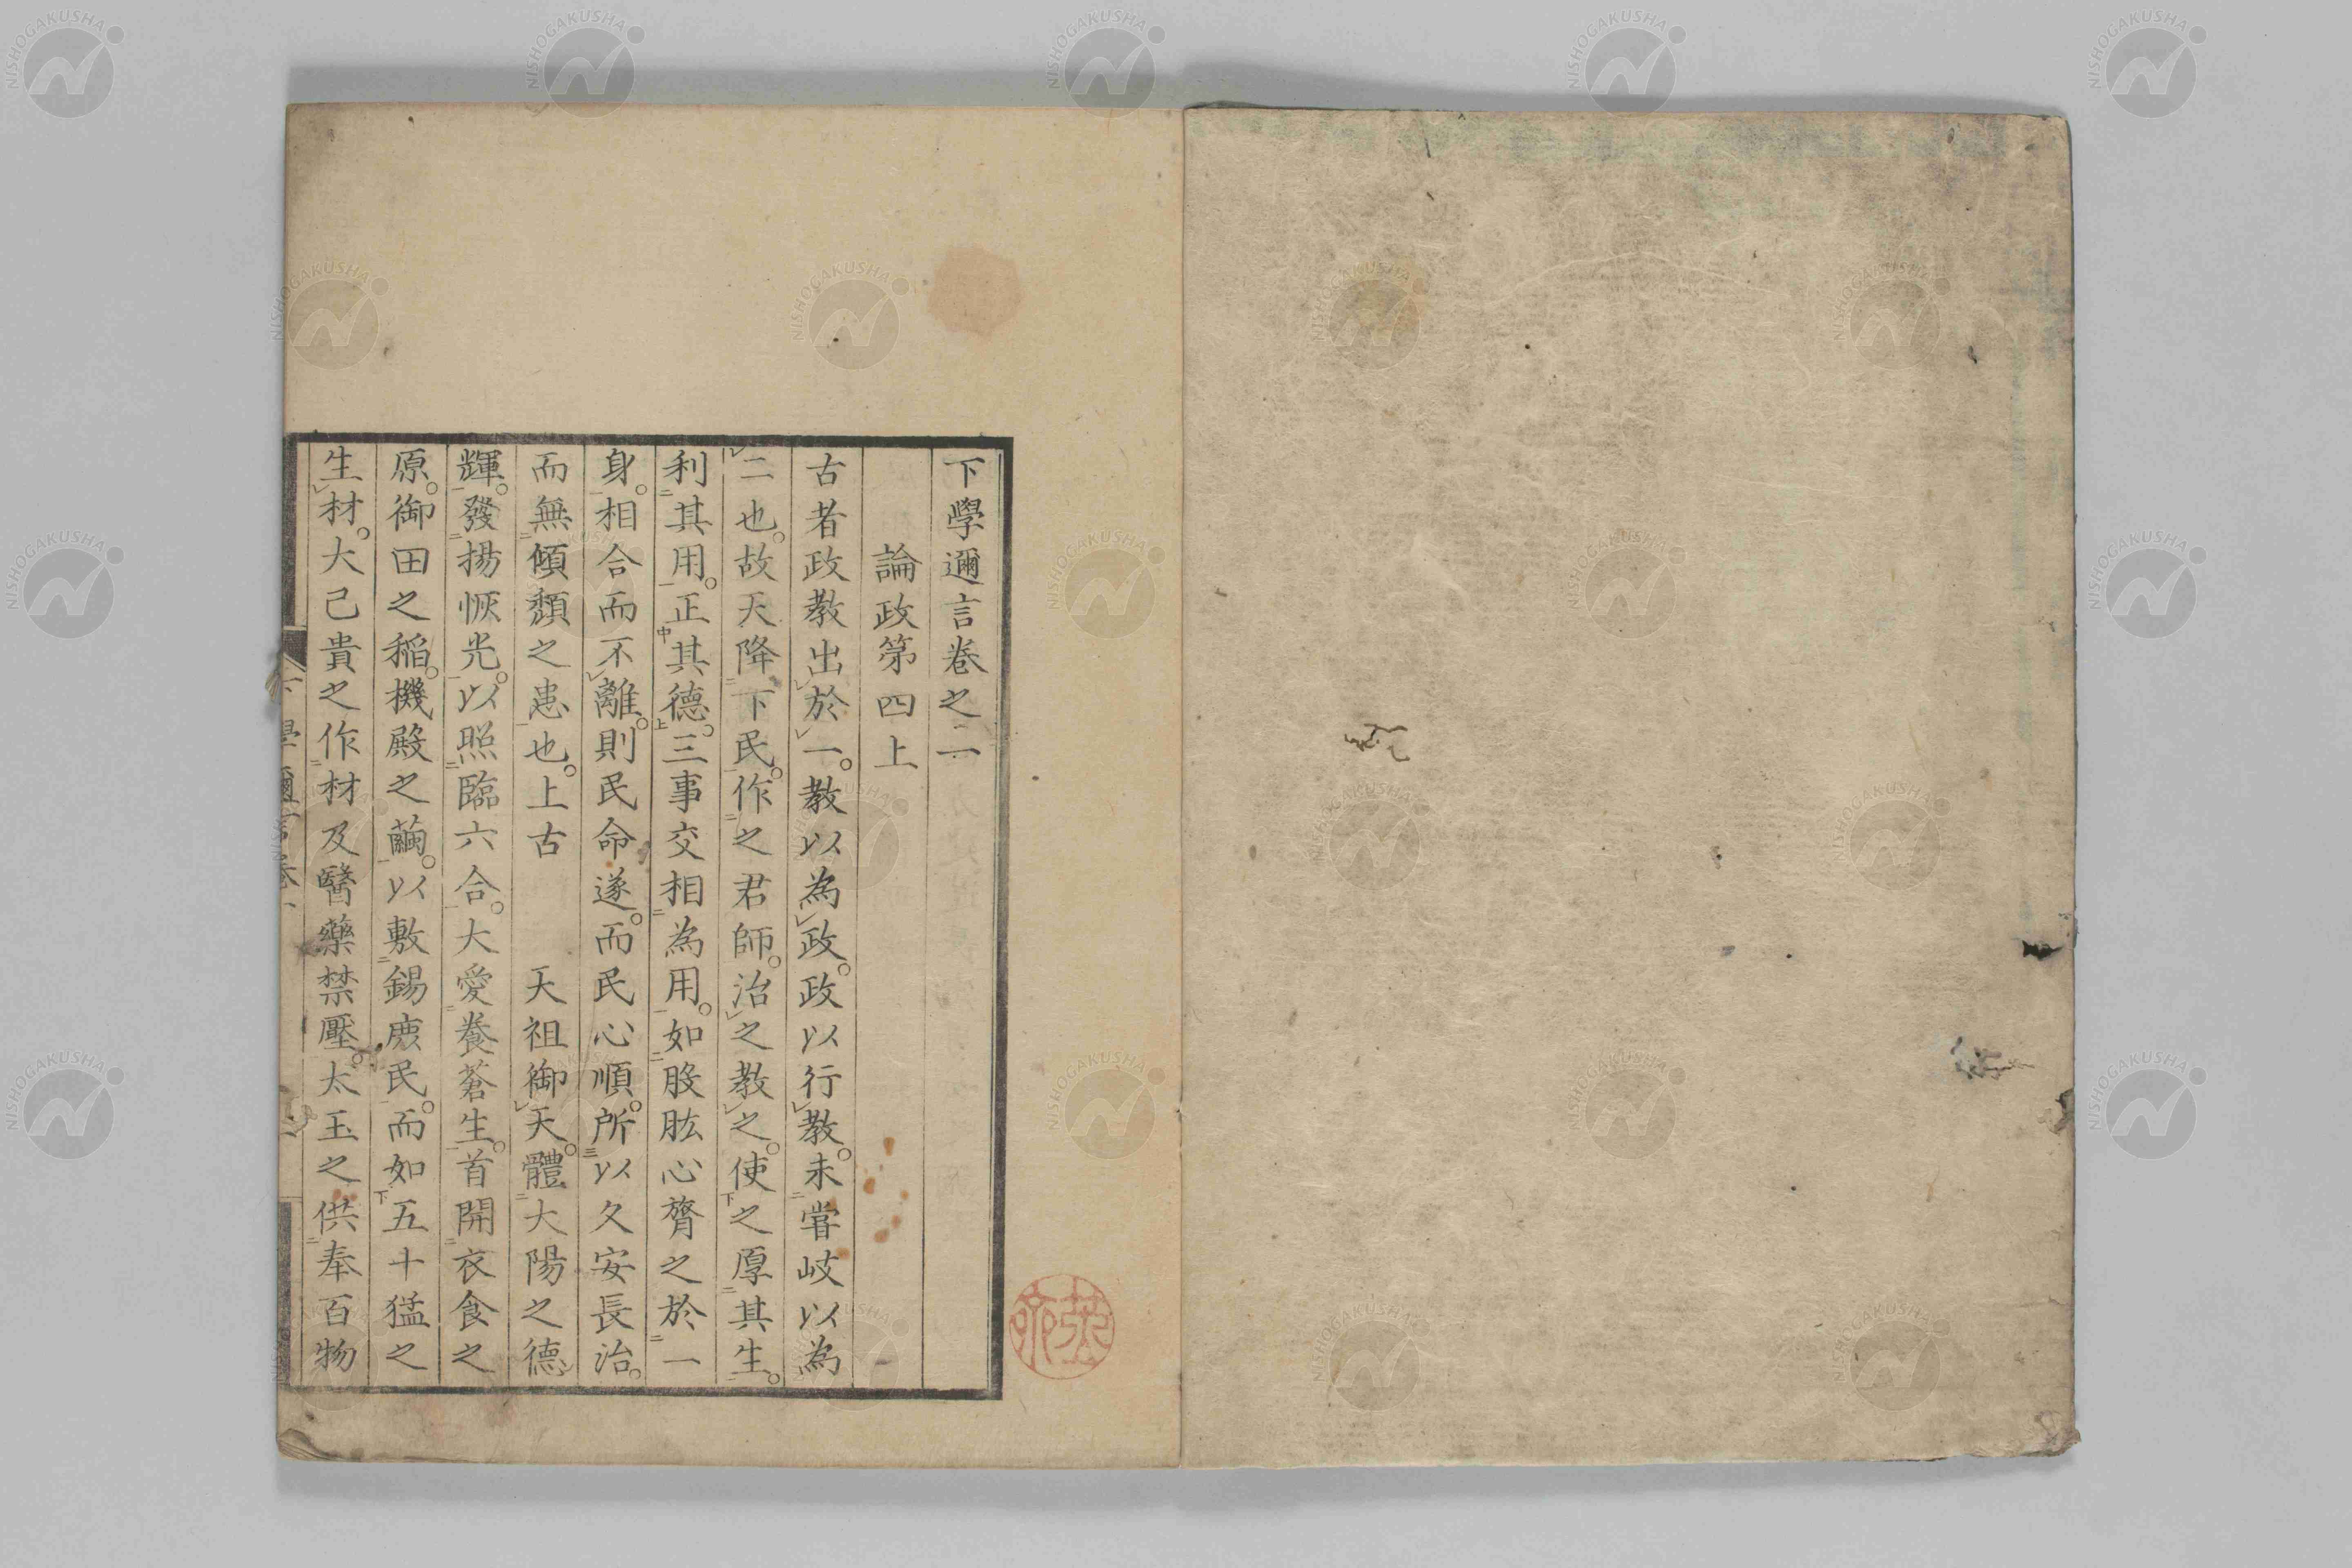 下學邇言卷之二
論政第四上
古者政教出於一。教以為政。政以行教。未嘗岐以為
二也。故天降下民。作之君師。治之教之。使之厚其生。
利其用。正其德。三事交相為用。如股肱心膂之於一
身。相合而不離。則民命遂。而民心順。所以久安長治。
而無傾頽之患也。上古 天祖御天。體大陽之德
輝。發揚恢光。以照臨六合。大愛養蒼生。首開衣食之
原。御田之稻。機殿之繭。以敷錫庶民。而如五十猛之
生材。大己貴之作材及醫藥禁壓。太玉之供奉百物
下學邇言卷
NISHOGAKUSHA